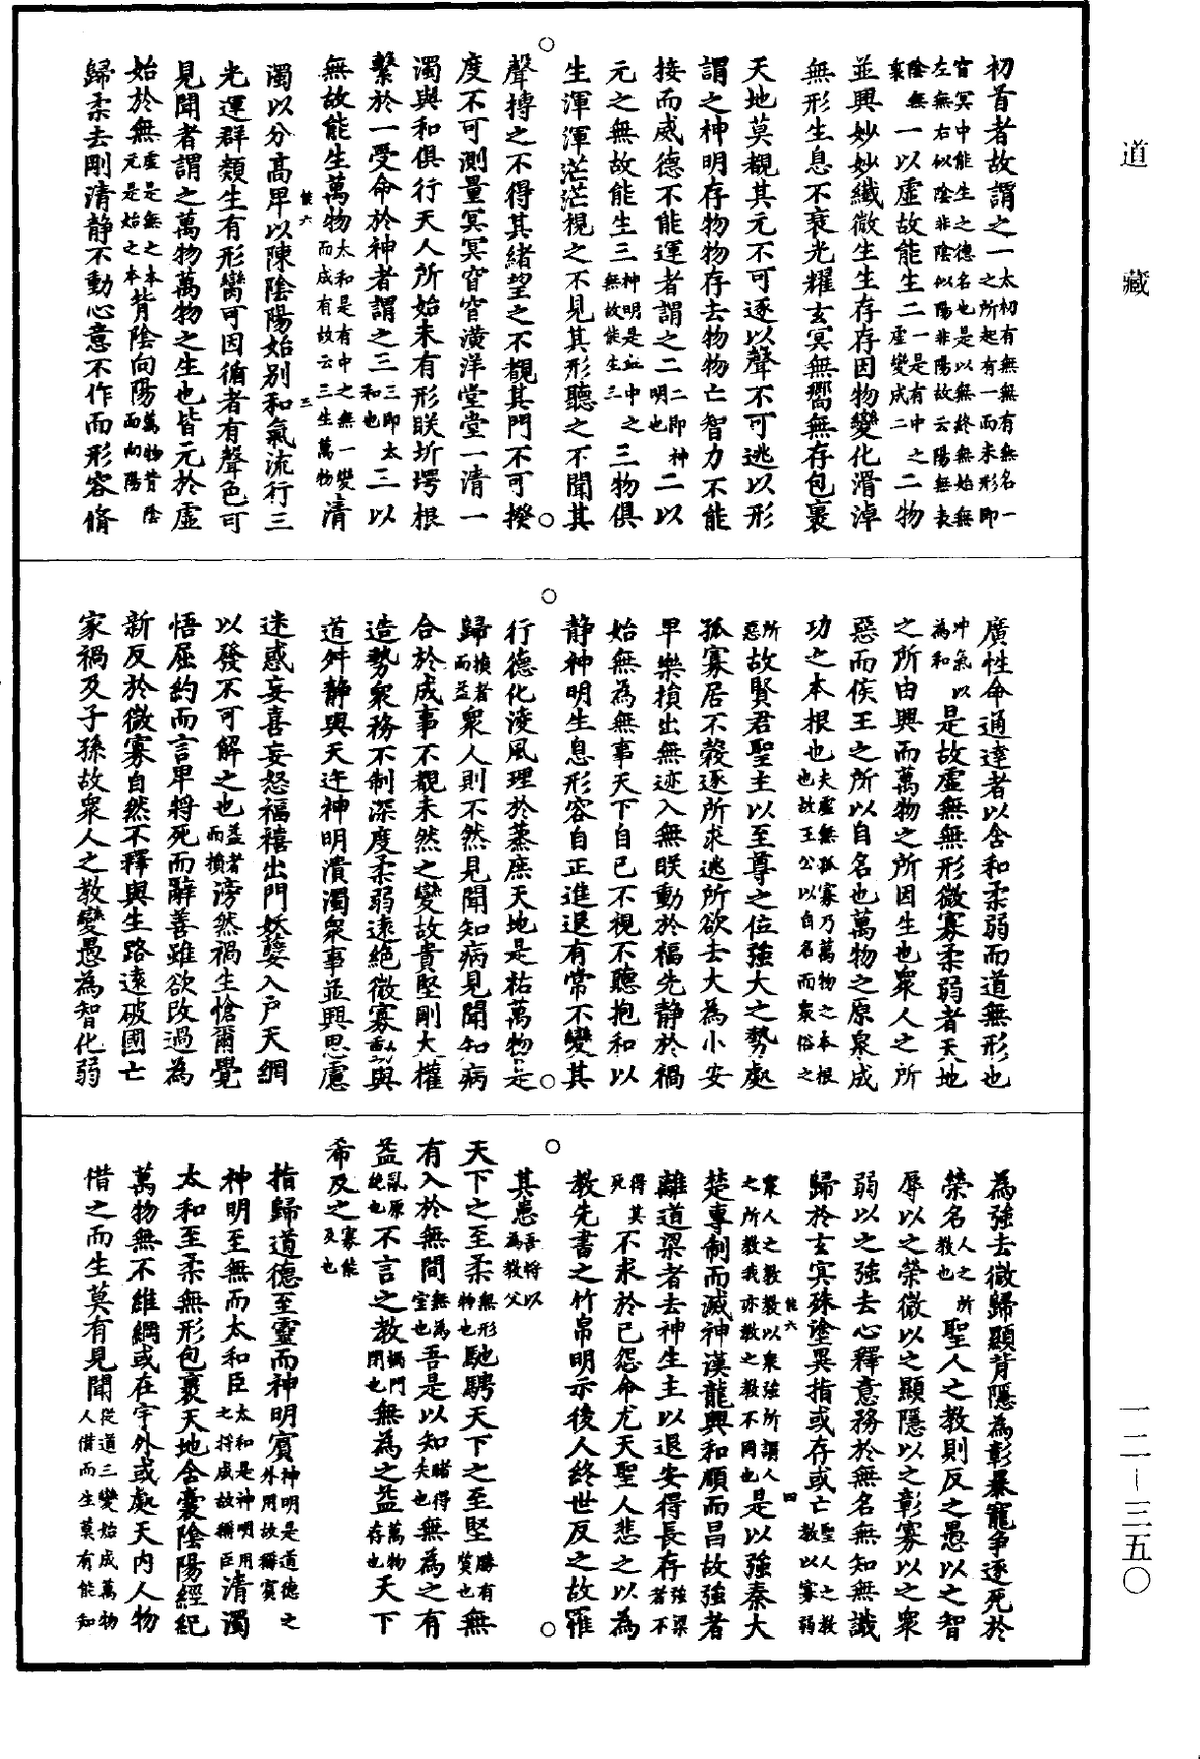 道藏
一二-三五〇
初首者故謂之一太初有無無有無名一之所起有一而未形即
窅冥中能生之德名也是以無終無始無左無右似陰非陰似陽非陽故云陽無表
陰無裏一以虛故能生二一是有中之虛變成二二物
並興妙妙纖微生生存存因物變化滑淖
無形生息不衰光耀玄冥無嚮無存包裹
天地莫覩其元不可逐以聲不可逃以形
謂之神明存物物存去物物亡智力不能
接而威德不能運者謂之二二即神明也二以
元之無故能生三神明是無中之無故能生三三物俱
生渾渾茫茫視之不見其形聽之不聞其
聲搏之不得其緒望之不覩其門不可揆
度不可測量冥冥窅窅潢洋堂堂一清一
濁與和俱行天人所始未有形朕圻堮根
繫於一受命於神者謂之三三即太和也三以
無故能生萬物太和是有中之無一變而成有故云三生萬物清
濁以分高卑以陳陰陽始別和氣流行三
光運群類生有形臠可因循者有聲色可
見聞者謂之萬物萬物之生也皆元於虛
始於無虛是無之本元是始之本背陰向陽萬物背陰而向陽
歸柔去剛清静不動心意不作而形容脩
廣性命通達者以含和柔弱而道無形也
冲氣以為和是故虛無無形微寡柔弱者天地
之所由興而萬物之所因生也衆人之所
惡而侯王之所以自名也萬物之原泉成
功之本根也夫虛無孤寡乃萬物之本根也故王公以自名而衆俗之
所惡故賢君聖主以至尊之位強大之勢處
孤寡居不穀逐所求逃所欲去大為小安
卑樂損出無迹入無朕動於福先静於禍
始無為無事天下自已不視不聽抱和以
静神明生息形容自正進退有常不變其
行德化淩風理於蒸庶天地是祐萬物是
歸損者而益衆人則不然見聞知病見聞知病
合於成事不覩未然之變故貴堅剛大權
造勢衆務不制深度柔弱遠絶微寡動與
道舛静與天迕神明潰濁衆事並興思慮
迷惑妄喜妄怒福禧出門妖孽入戶天網
以發不可解之也益者而損滂然禍生愴爾覺
悟屈約而言卑將死而辭善雖欲改過為
新反於微寡自然不釋與生路遠破國亡
家禍及子孫故衆人之教變愚為智化弱
為強去微歸顯背隱為彰暴寵爭逐死於
榮名人之所教也聖人之教則反之愚以之智
辱以之榮微以之顯隱以之彰寡以之衆
弱以之強去心釋意務於無名無知無識
歸於玄冥殊塗異指或存或亡聖人之教教以寡弱
衆人之教教以衆強所謂人之所教我亦教之教不同也是以強秦大
楚專制而滅神漢龍興和順而昌故強者
離道梁者去神生主以退安得長存強梁者不
得其死不求於己怨命尤天聖人悲之以為
教先書之竹帛明示後人終世反之故罹
其患吾將以為教父
天下之至柔無形物也馳騁天下之至堅勝有質也無
有入於無間無為室也吾是以知睹得失也無為之有
益亂原絶也不言之教禍門閉也無為之益萬物存也天下
希及之寡能及也
指歸道德至靈而神明賓神明是道德之外用故稱賓
神明至無而太和臣太和是神明用用之將成故稱臣清濁
太和至柔無形包裹天地含囊陰陽經紀
萬物無不維綱或在宇外或處天內人物
借之而生莫有見聞從道三變始成萬物人借而生莫有能知